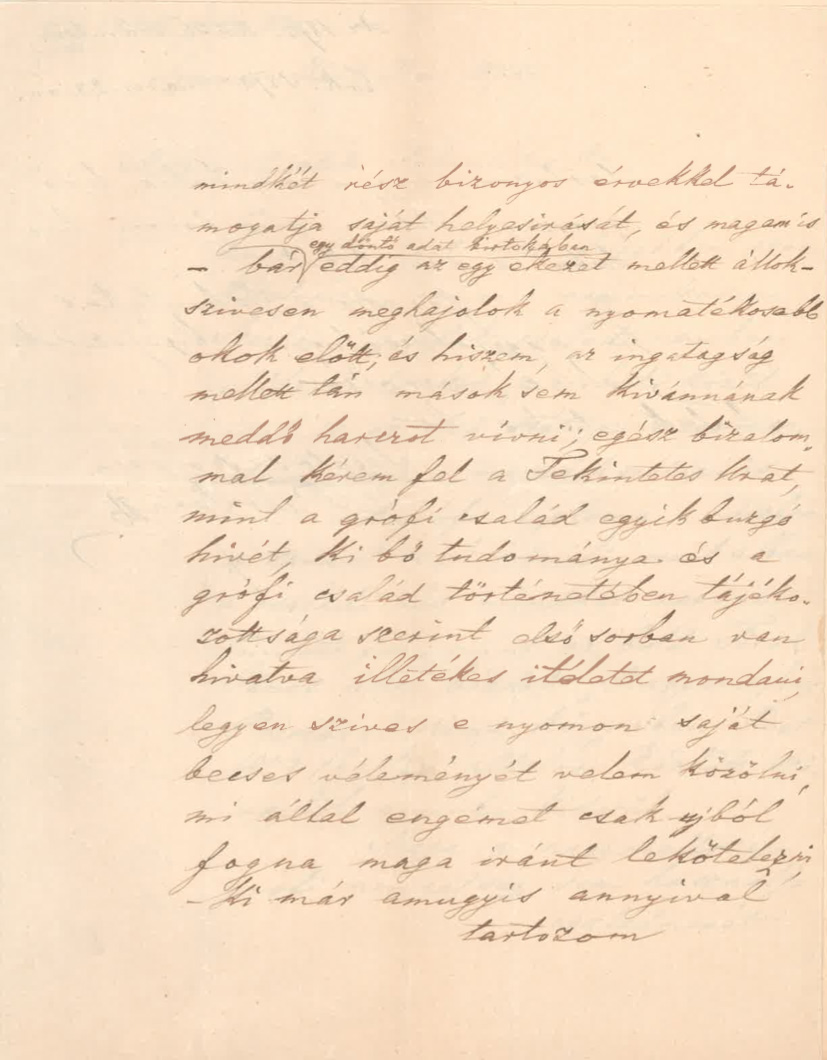 mindkét rész bizonyos érvekkel tá-
mogatja saját helyesirását, és magam is
egy döntő adat birtokában
– bár eddig az egy ekezet mellett állok –
szivesen meghajolok a nyomatékosabb
okok előtt, és hiszem, az ingatagság
mellett tán mások sem kivánnának
meddő harczot vívni; egész bizalom-
mal kérem fel a Tekintetes Urat,
mint a grófi család egyik buzgó
hivét, ki bő tudománya és a
grófi család történetében tájéko-
zottsága szerint első sorban van
hivatva illetékes itéletet mondani,
legyen szives e nyomon saját
becses véleményét velem közölni,
mi által engemet csak ujból
fogna maga iránt lekötelezni,
– Ki már amugyis annyival
tartozom